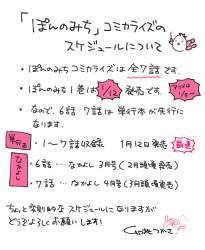 「ぽんのみち」コミカライズの
スケジュールについて
・ぽんのみちコミカライズは全7話です.
・ぽんのみち1巻は1/12発売です.
・なので、6話・7話は単行本が先行に
なります.
単行本・1〜7話収録 1月12日発売
なかよし
・6話…なかよし3月号(2月頭頃発売)
・7話…なかよし4月号(3月頭頃発売)
ちょっと変則的なスケジュールになりますが
どうぞよろしくお願いします!